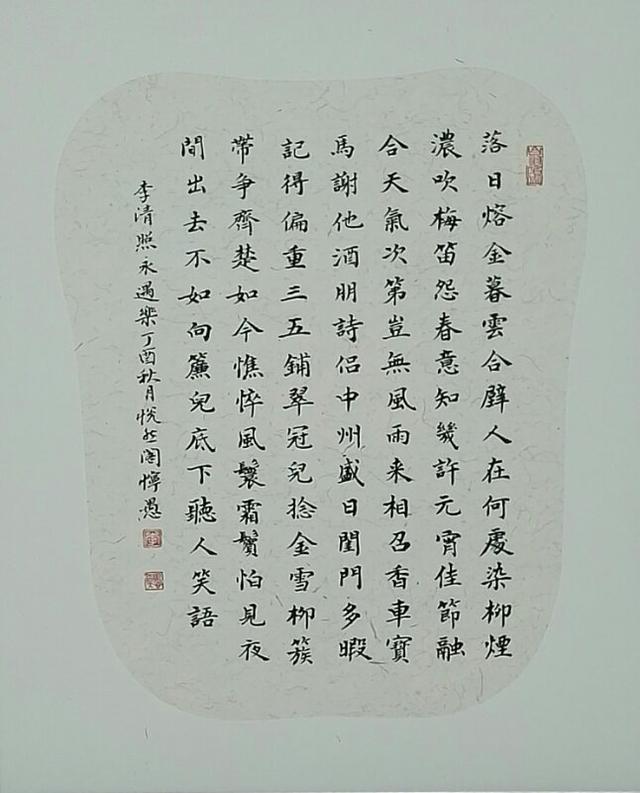 落日熔金暮雲合璧人在何處染柳煙
濃吹梅笛怨春意知幾許元宵佳節融
合天氣次第豈無風雨来相召香車寶
馬謝他酒朋詩侣中州盛日閨門多暇
記得偏重三五鋪翠冠兒捻金雪柳簇
帶争齊楚如今憔悴風鬟霜鬢怕見夜
間出去不如向簾兒底下聽人笑語
李清照永遇樂丁酉秋月